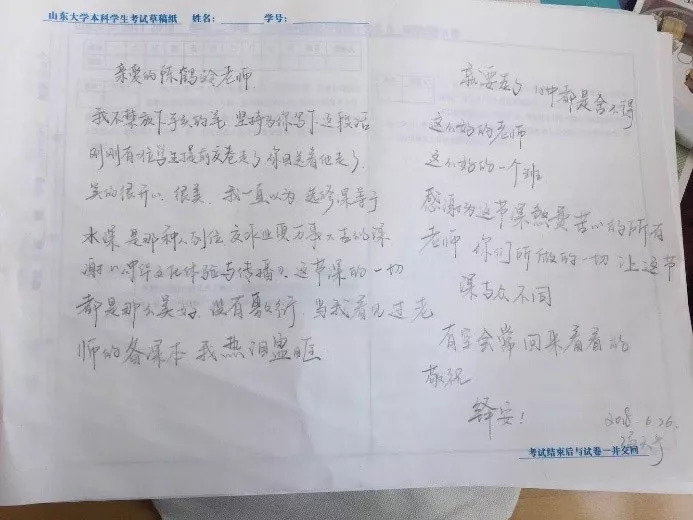 山东大学本科学生考试草稿纸 姓名: 学号:
亲爱的陈鹤 老师
我不禁放下手头的笔 坚持为你写下这段话
刚刚有一位学生提前交卷走了 你目送着他走了.
笑的很开心、很美. 我一直以为 选修课等于
水课 是那种人到位 交作业便万事大吉的课
谢《中华文化体验与传播》. 这节课的一切
都是那么美好. 没有敷衍. 当我看见过老
师的备课本 我热泪盈眶
就要走了 心中都是舍不得
这么好的老师
这么好的一个班
感谢为这节课煞费苦心的所有
老师 你们所做的一切 让这节
课与众不同
有空会常回来看看的
敬祝
铎安!
2018.6.26.
考试结束后与试卷一并交回